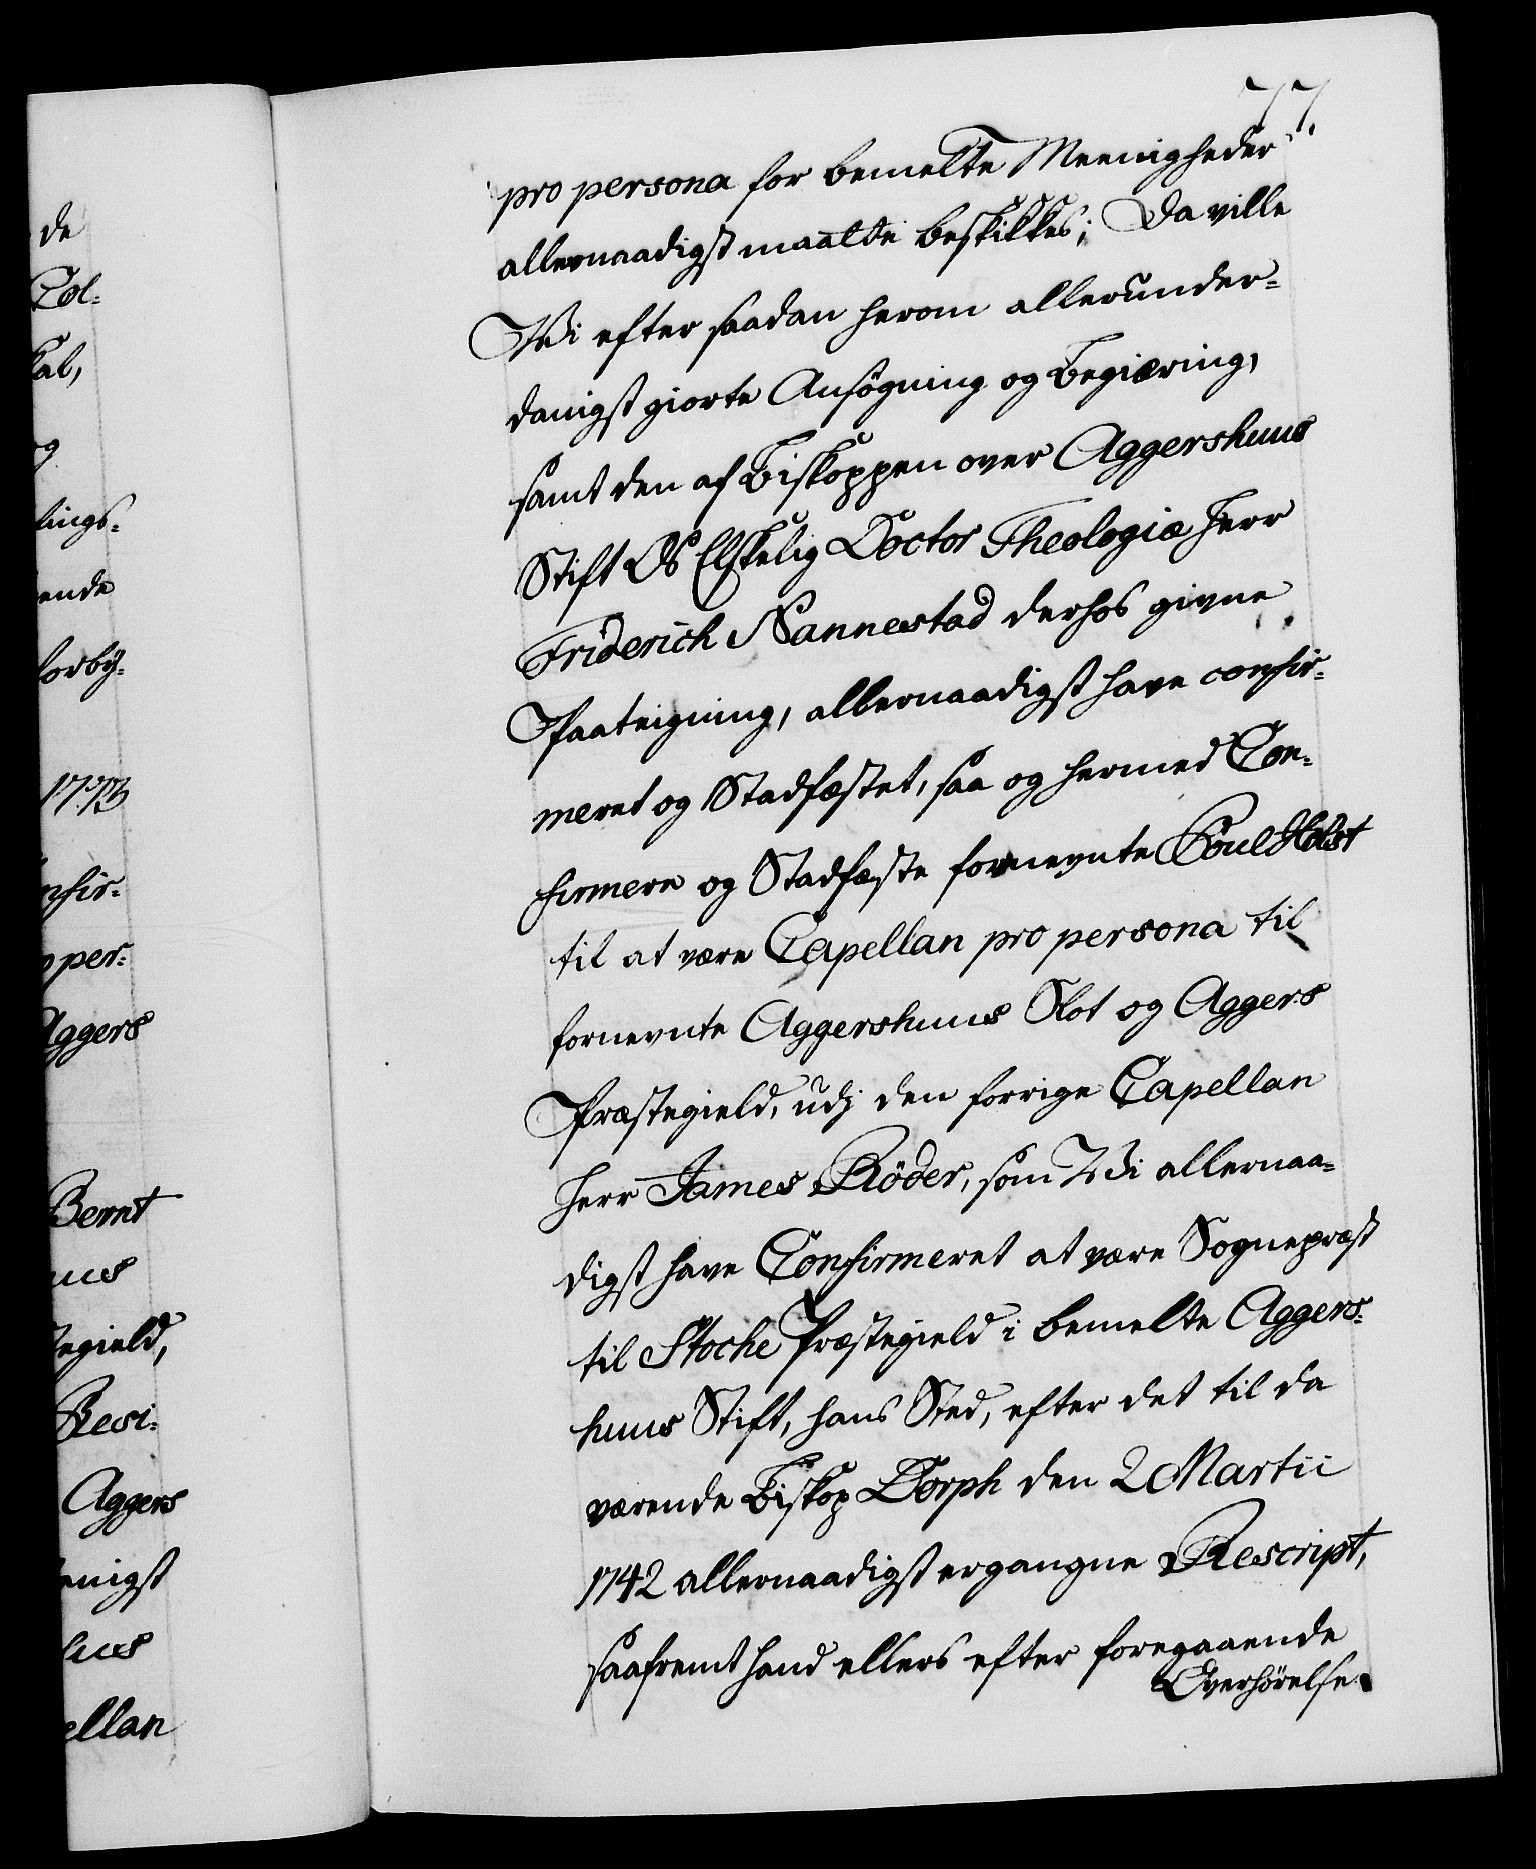 77.
pro persona for bemelte Meenigheder
allernaadigst maatte beskikkes; Da ville
Vi efter saadan herom allerunder=
danigst giorte Ansøgning og Begiæring,
samt den af Biskoppen over Aggershuus
Stift Os Elskelig Doctor Theologiæ Herr
Friderich Nannestad derhos givne
Paateigning, allernaadigst have confir=
meret og Stadfæstet, saa og hermed Con=
firmere og Stadfæste fornevnte Poul Holst
til at være Capellan pro persona til
fornevnte Aggershuus Slot og Aggers
Præstegield, udj den forrige Capellan
Herr James Röder, som Vi allernaa=
digst have Confirmeret at være Sognepræst
til Stoche Præstegield i bemelte Aggers=
huus Stift, hans Sted, efter det til da
værende Biskop Dorph den 2 Martii
1742 allernaadigst ergangne Rescript,
saafremt hand ellers efter foregaaende
Overhørelse
de
Col=
kal,
og
lings=
ende
forby=
nfir=
per=
Aggers
Bernt
uus
egield,
Resi=
Aggers
enigst
huus
ellan